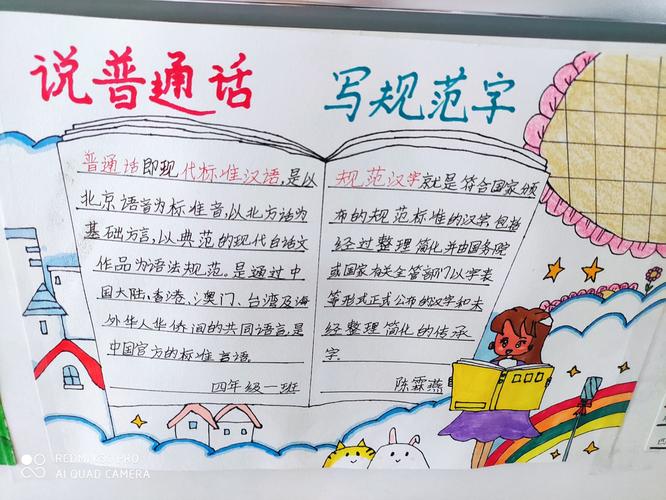 说普通话
写规范字
普通话即现代标准汉语,是以
北京语音为标准音,以北方话为
基础方言,以典范的现代白话文
作品为语法规范。是通过中
国大陆、香港、澳门、台湾及海
外华人华侨间的共同语言,是
中国官方的标准言语.
四年级一班
规范汉字就是符合国家颁
布的规范标准的汉字,包括
经过整理简化并由国务院
或国家有关全管部门以字表
等形式正式公布的汉字和未
经整理简化的传承
字.
陈霖燕
AI QUAD CAMERA